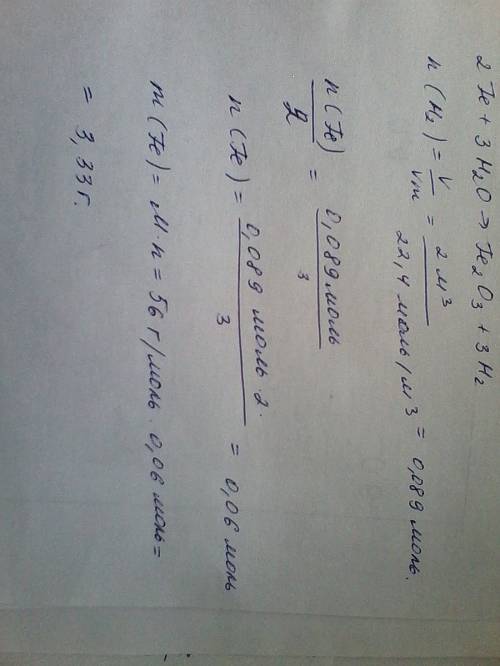 2 Fe + 3 H2O → Fe2O3 + 3 H2
n (H2) = V/Vm = 2 м³ / 22,4 моль/м³ = 0,089 моль.
n (Fe) / 2 = 0,089 моль / 3
n (Fe) = 0,089 моль · 2. / 3 = 0,06 моль
m (Fe) = M · n = 56 г/моль · 0,06 моль =
= 3,33 г.